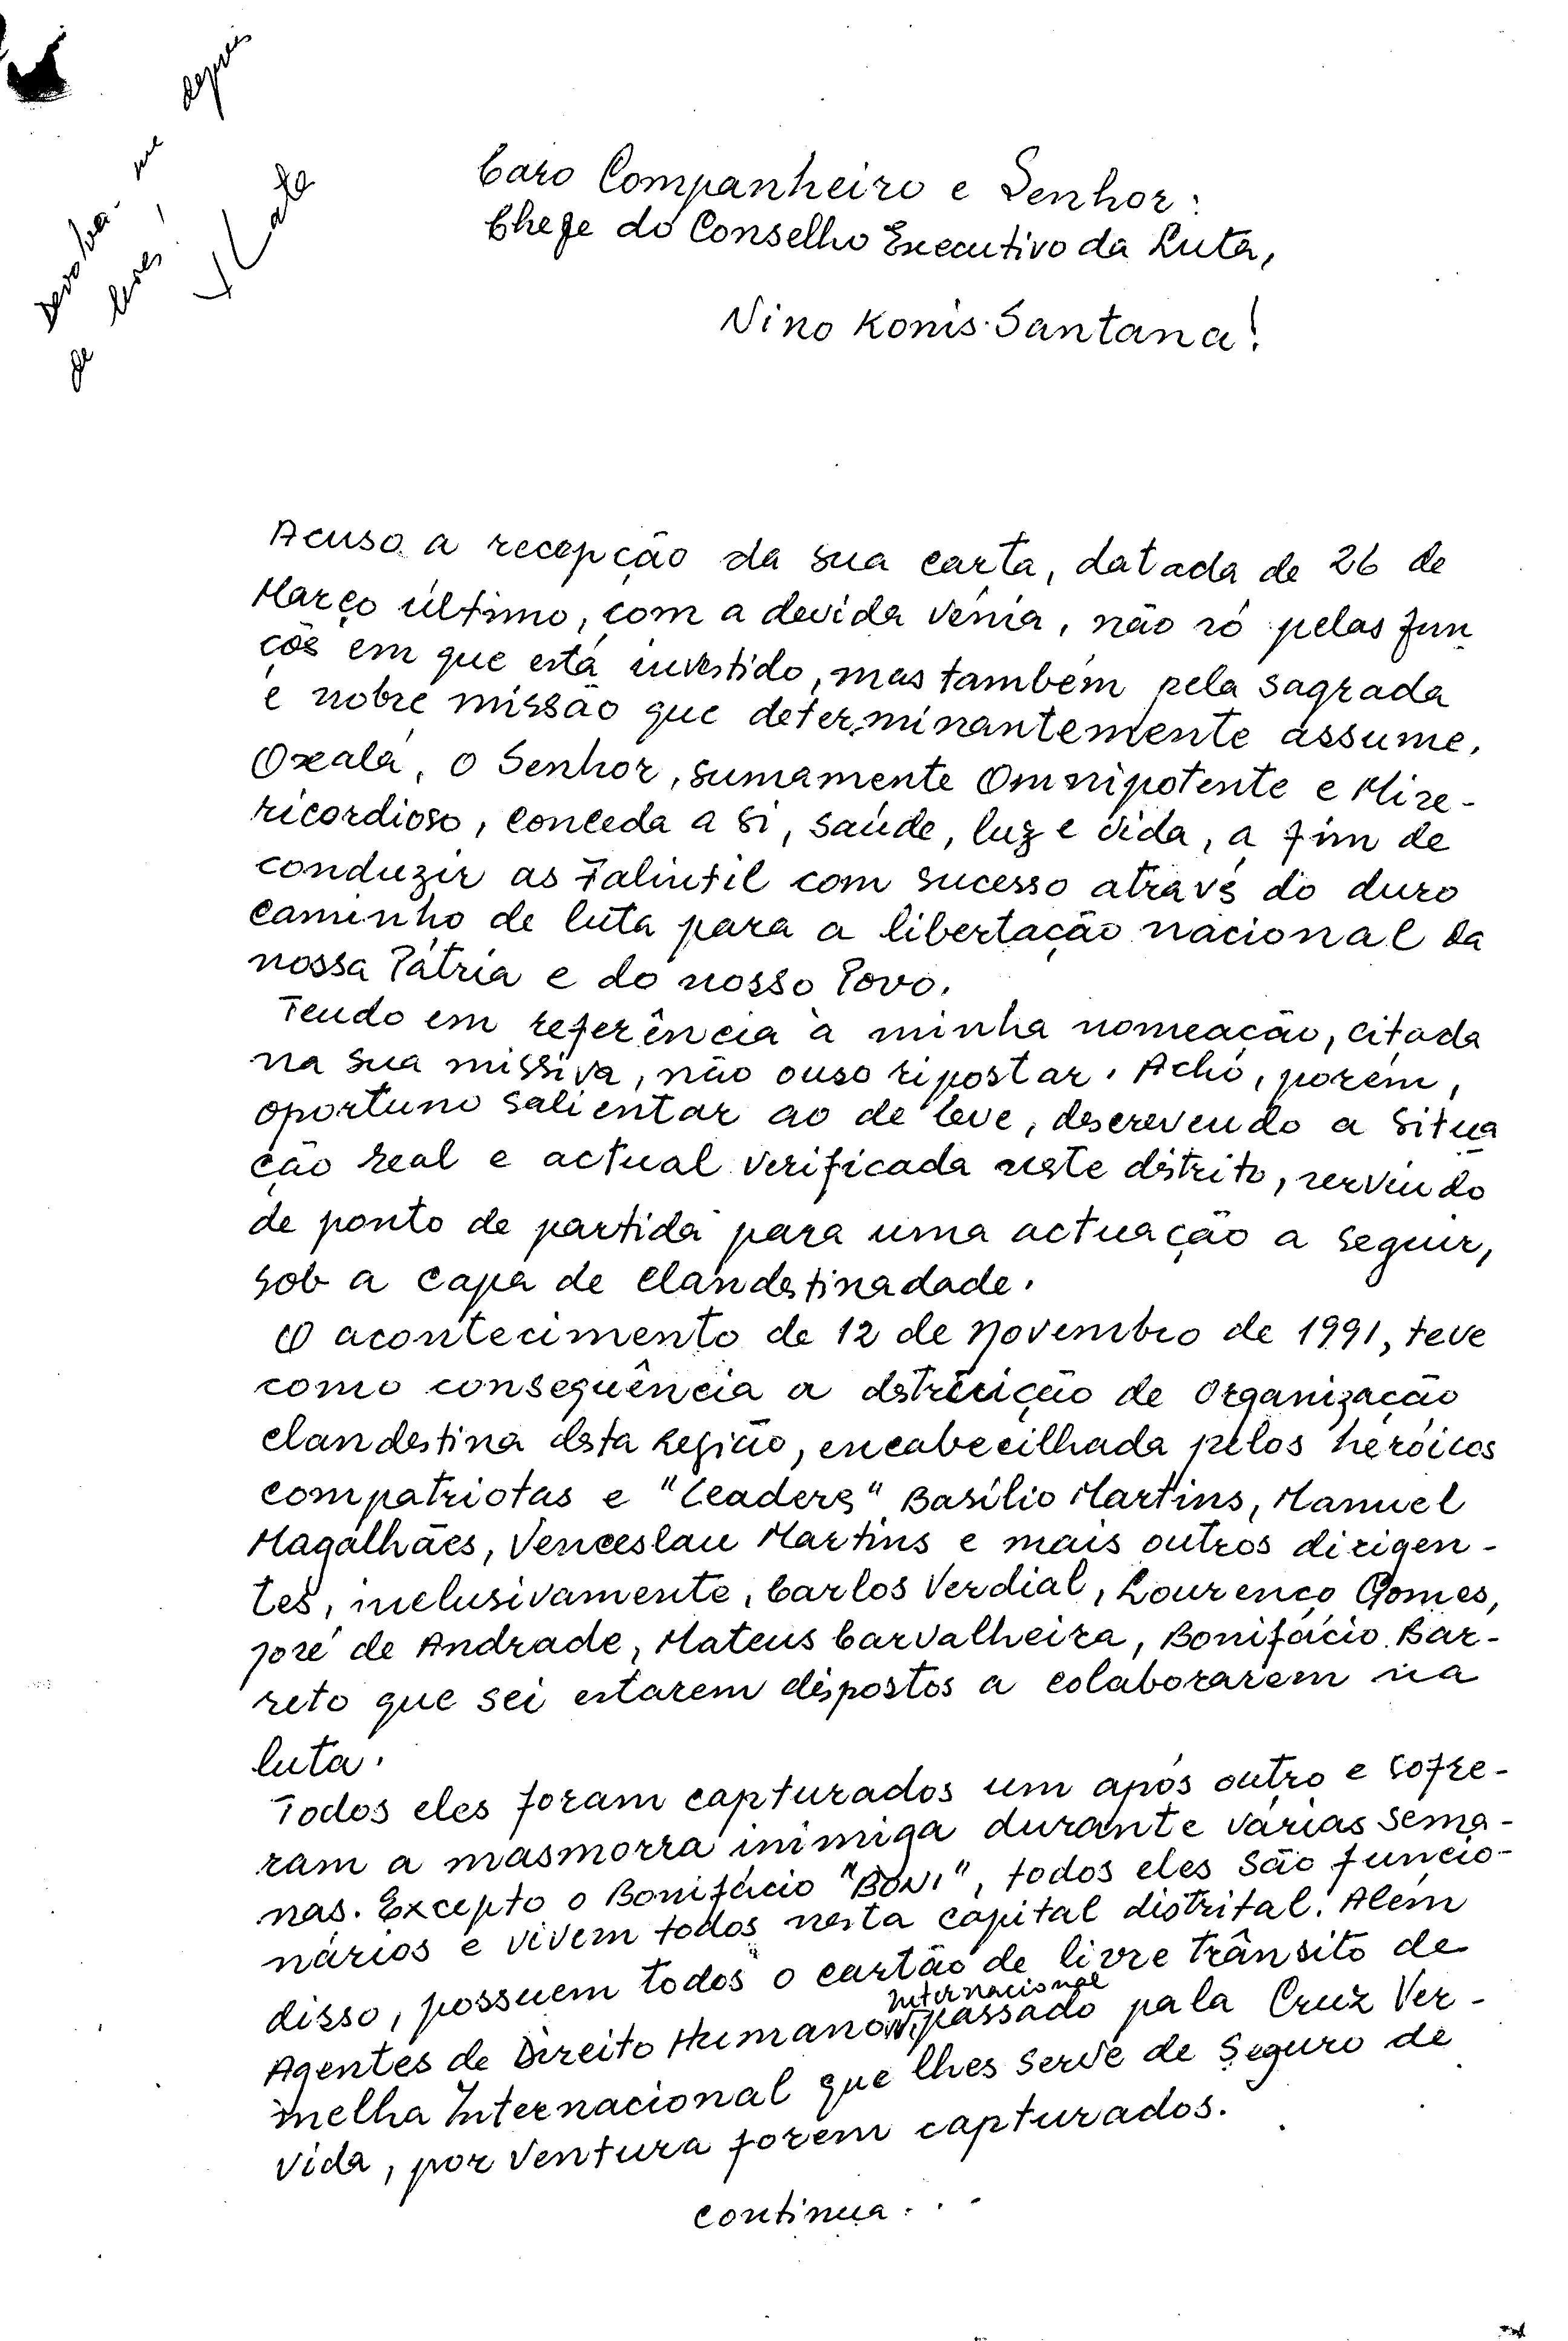 Devolva-me depois
de leres!
Caro Companheiro e Senhor:
Chefe do Conselho Executivo da Luta,
Nino Konis Santana!
Acuso a recepção da sua carta, datada de 26 de
Março último, com a devida vénia, não só pelas fun
ções em que está investido, mas também pela sagrada
e nobre missão que determinantemente assume.
Oxalá, o Senhor, sumamente Omnipotente e Mise-
ricordioso, conceda a si, saúde, luz e vida, a fim de
conduzir as Falintil com sucesso através do duro
caminho de luta para a libertação nacional da
nossa Pátria e do nosso Povo.
Tendo em referência à minha nomeação, citada
na sua missiva, não ouso ripostar. Acho, porém,
oportuno salientar ao de leve, descrevendo a situa
ção real e actual verificada neste distrito, servindo
de ponto de partida para uma actuação a seguir,
sob a capa de clandestinadade.
O acontecimento de 12 de Novembro de 1991, teve
como consequência a destruição de Organização
clandestina desta Região, encabecilhada pelos heróicos
compatriotas e "Leaders" Basílio Martins, Manuel
Magalhães, Venceslau Martins e mais outros dirigen-
tes, inclusivamente, Carlos Verdial, Lourenço Gomes,
José de Andrade, Mateus Carvalheira, Bonifácio Bar-
reto que sei estarem dispostos a colaborarem na
luta.
Todos eles foram capturados um após outro e sofre-
ram a masmorra inimiga durante várias sema-
nas. Excepto o Bonifácio "BONI", todos eles são funcio-
nários e vivem todos nesta capital distrital. Além
disso, possuem todos o cartão de livre trânsito de
Internacional
Agentes de Direito Humano passado pala Cruz Ver-
melha Internacional que lhes serve de seguro de
vida, por ventura forem capturados.
continua...